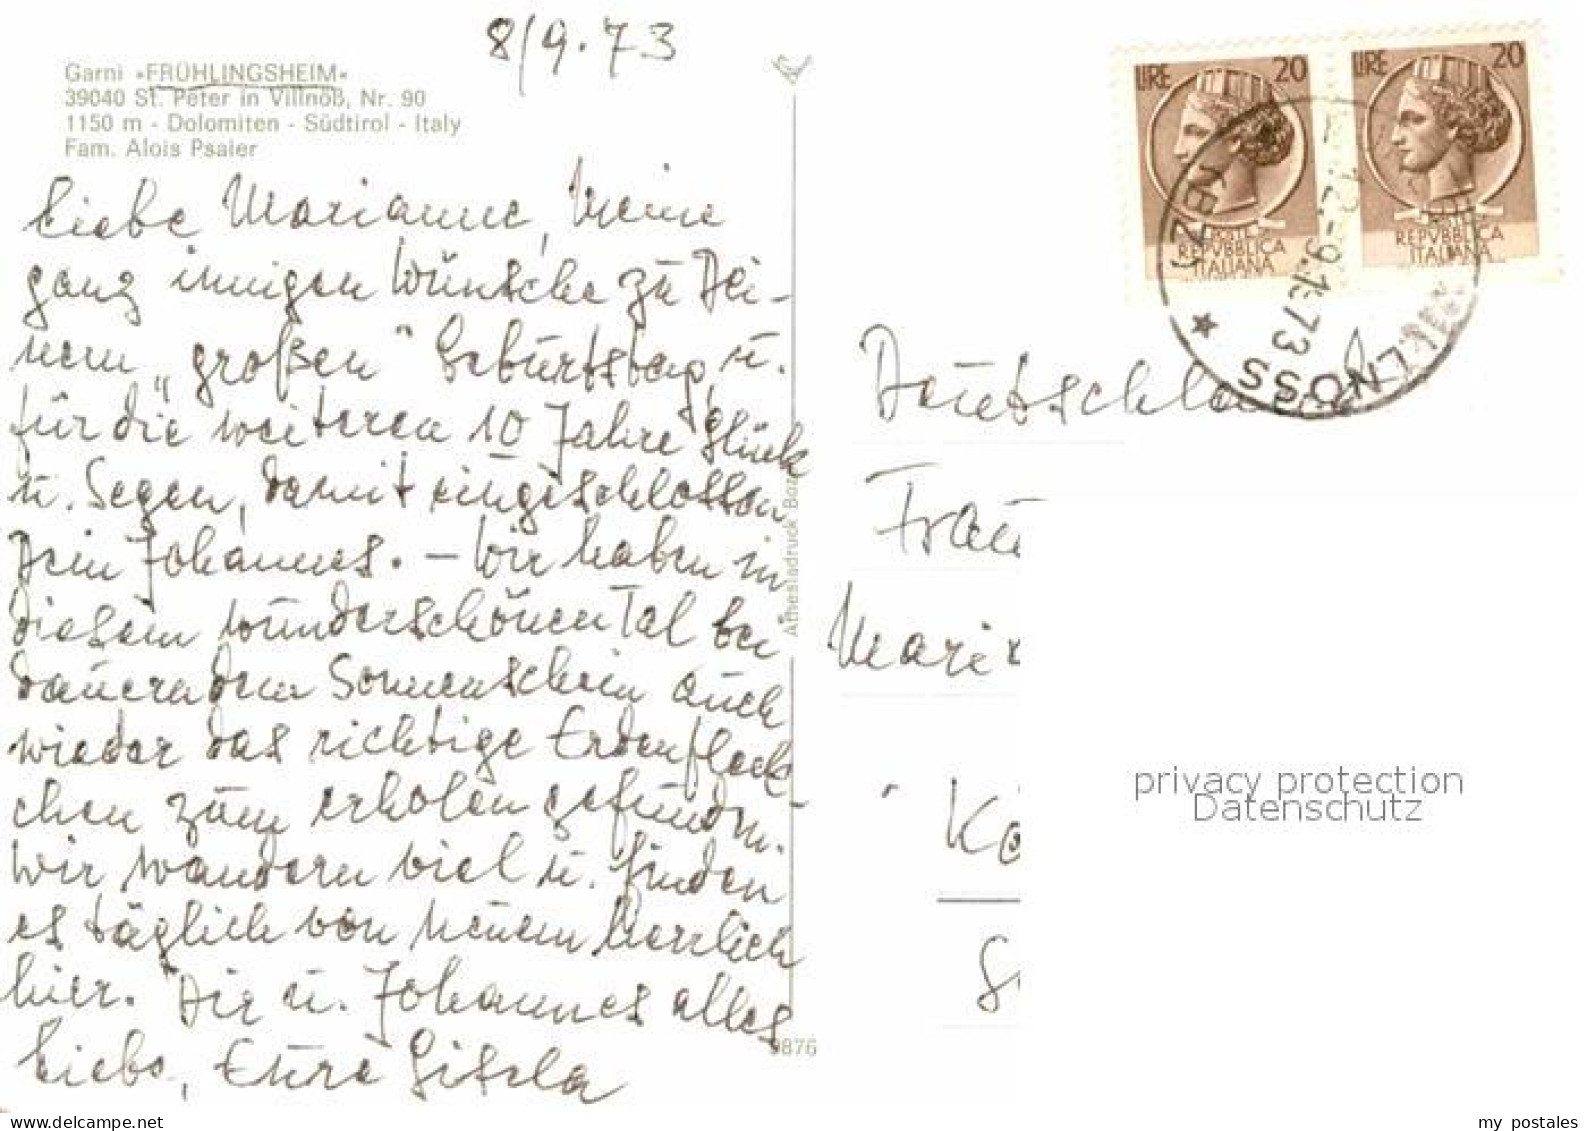 8/9.73
Garni »FRÜHLINGSHEIM«
39040 St. Peter in Villnöß, Nr. 90
1150 m - Dolomiten - Südtirol - Italy
Fam. Alois Psaier
Liebe Marianne, Meine
ganz innigen Wünsche zu Dei-
nem „großen" Geburtstag u.
für die weiteren 10 Jahre Glück
u. Segen, damit eingeschlossen
Dein Johannes. – Wir haben in
diesem wunderschönen Tal bei
dauerndem Sonnenschein auch
wieder das richtige Erdenfleck-
chen zum erholen gefunden.
Wir wandern viel u. finden
es täglich von neuem herrlich
hier. Dir u. Johannes alles
Liebe, Eure Gisela
Athesiadruck Boz
9876
LIRE 20
POSTE
REPVBBLICA
ITALIANA
LIRE 20
POSTE
REPVBBLICA
ITALIANA
-9.73
NOSS
Deutschland
Frau
Mari
Kö
privacy protection
Datenschutz
www.delcampe.net
my_postales